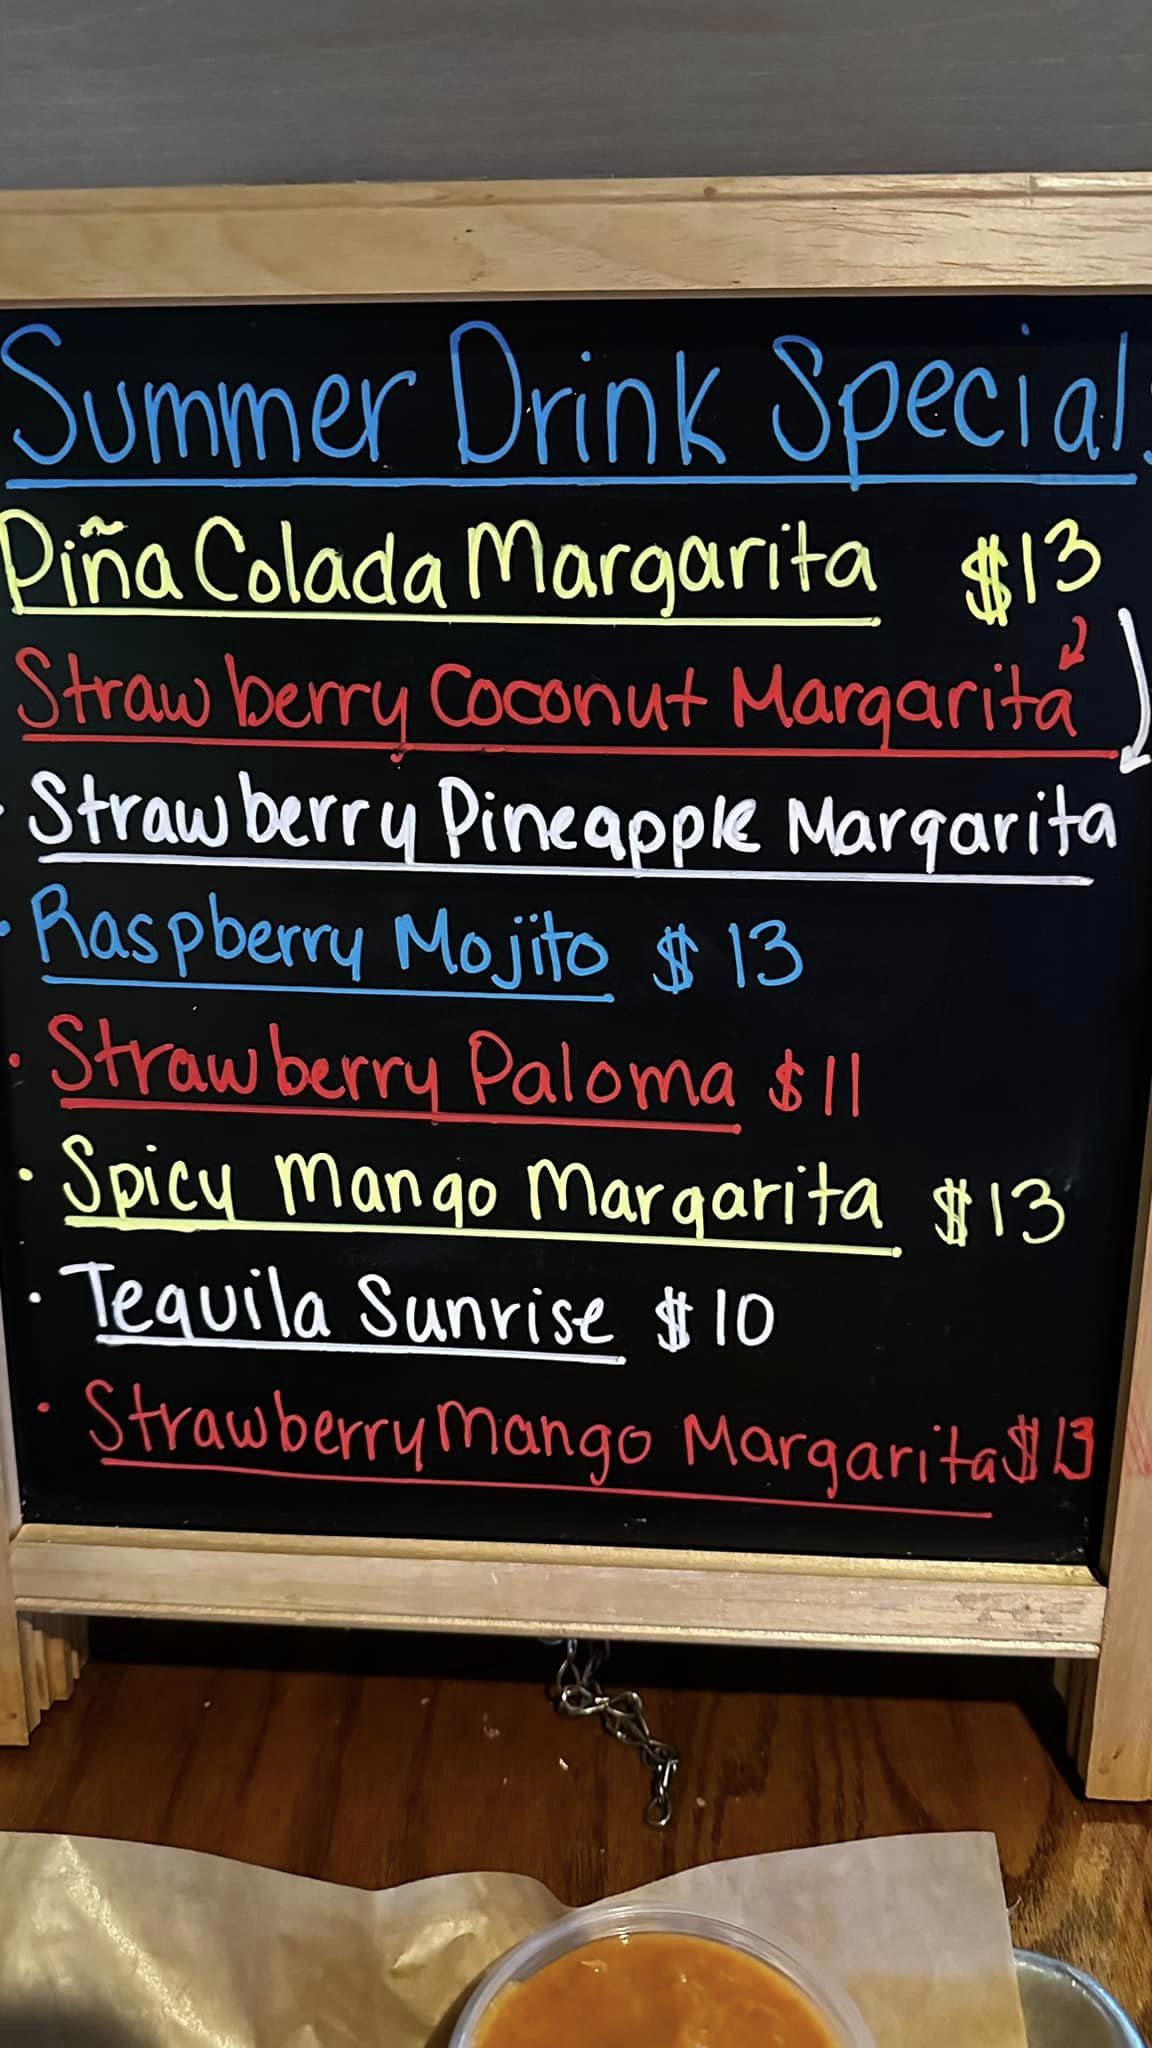 Summer Drink Specials
Piña Colada Margarita $13
Strawberry Coconut Margarita
• Strawberry Pineapple Margarita
• Raspberry Mojito $13
• Strawberry Paloma $11
• Spicy Mango Margarita $13
• Tequila Sunrise $10
• Strawberry Mango Margarita $13